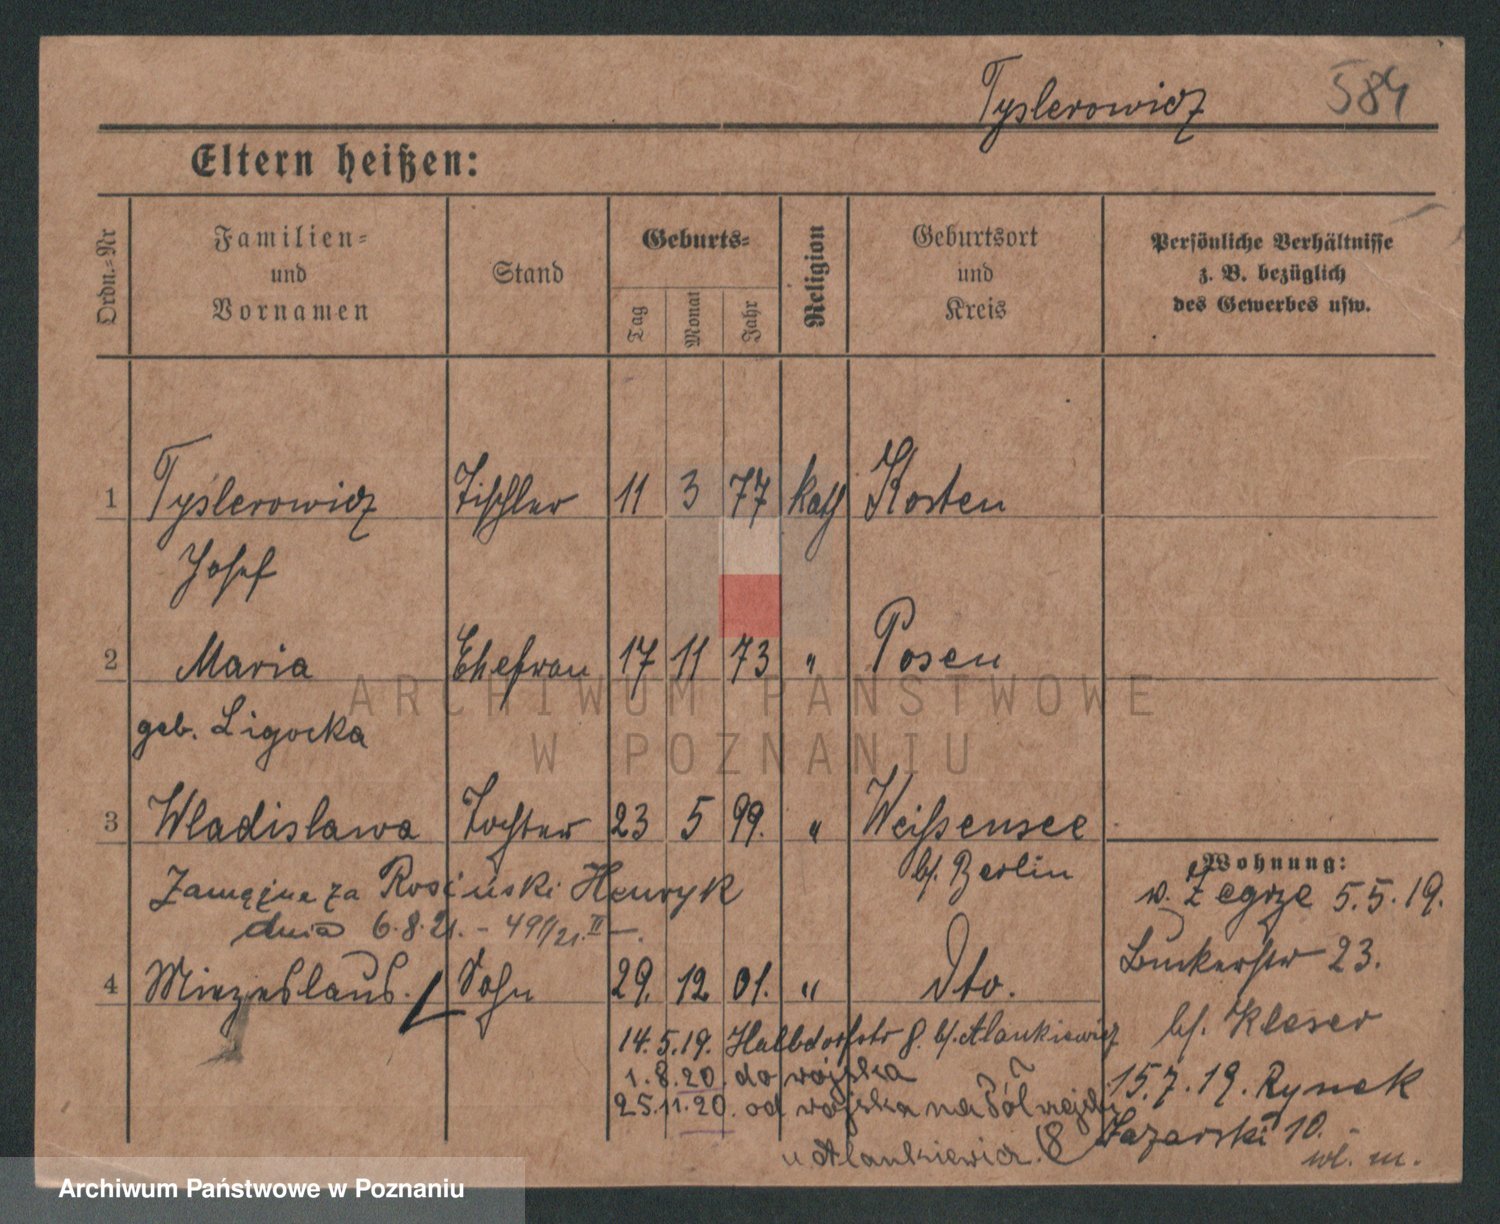 Tyslerowicz 584
Eltern heißen:
Ordn.-Nr
Familien- und Vornamen
Stand
Geburts-
Tag
Monat
Jahr
Religion
Geburtsort und Kreis
Persönliche Verhältnisse z. B. bezüglich des Gewerbes usw.
1 Tyslerowicz Tischler 11 3 77 kath Kosten
Josef
2 Maria Ehefrau 17 11 73 " Posen
geb. Ligocka
3 Wladislawa Tochter 23 5 99. " Weißensee
b/. Berlin
Zamężna za Rosiński Henryk
dnia 6.8.21. - 491/21. II -.
4 Miezeslaus. Sohn 29. 12 01. " Dto.
14.5.19. Halbdorfstr 8. b/. Alankiewicz
1.8.20. do wojska
25.11.20. od wojska na Półwiejską
u Alankiewicz. 8
Wohnung:
v. Żegrze 5.5.19.
Bukerstr 23.
b/. Kleser
15.7.19. Rynek
Łazarski 10. -
wł. m.
ARCHIWUM PAŃSTWOWE
W POZNANIU
Archiwum Państwowe w Poznaniu